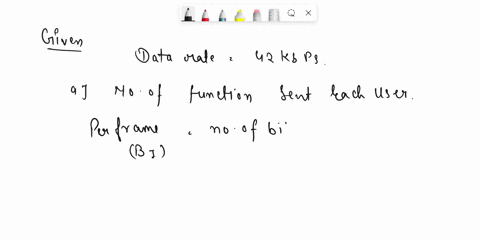 Given
Data rate = 42 Kb Ps.
a] No. of function Sent Each User.
Per frame = no. of bi
(B])